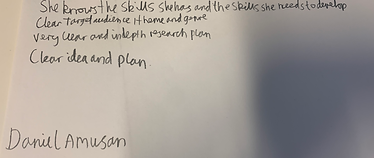 She knows the skills she has and the skills she needs to develop
Clear target audience, theme and genre
very clear and indepth research plan
Clear idea and plan.
Daniel Amusan